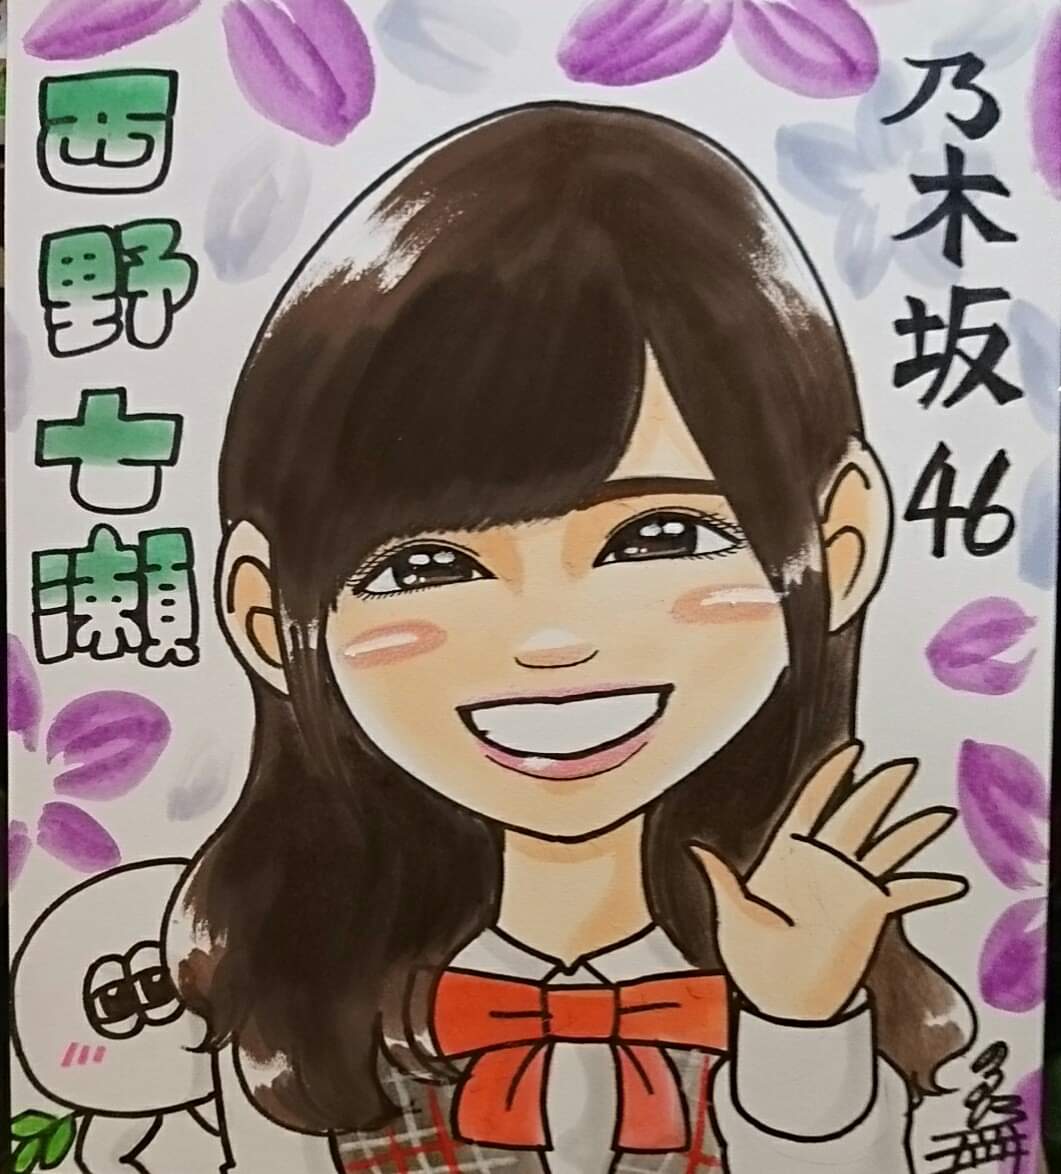 乃木坂46
西野七瀬